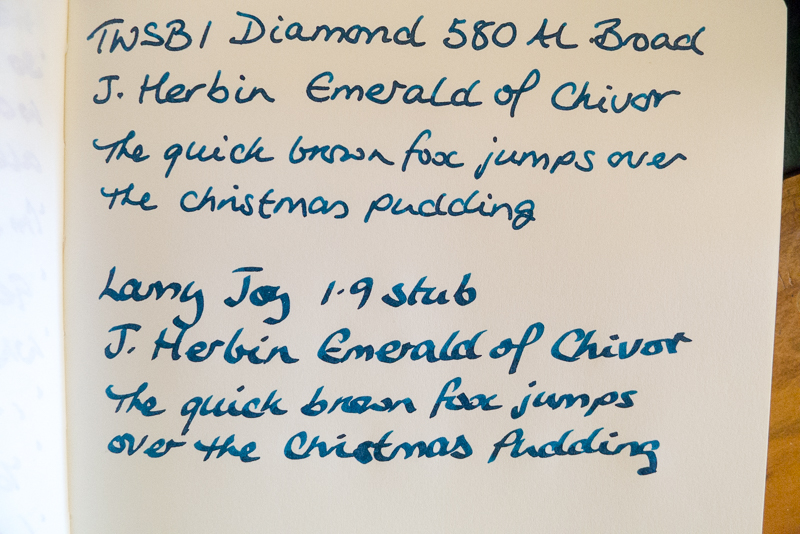 TWSBI Diamond 580 AL Broad
J. Herbin Emerald of Chivor
The quick brown fox jumps over
the christmas pudding
Lamy Joy 1.9 stub
J. Herbin Emerald of Chivor
The quick brown fox jumps
over the Christmas Pudding